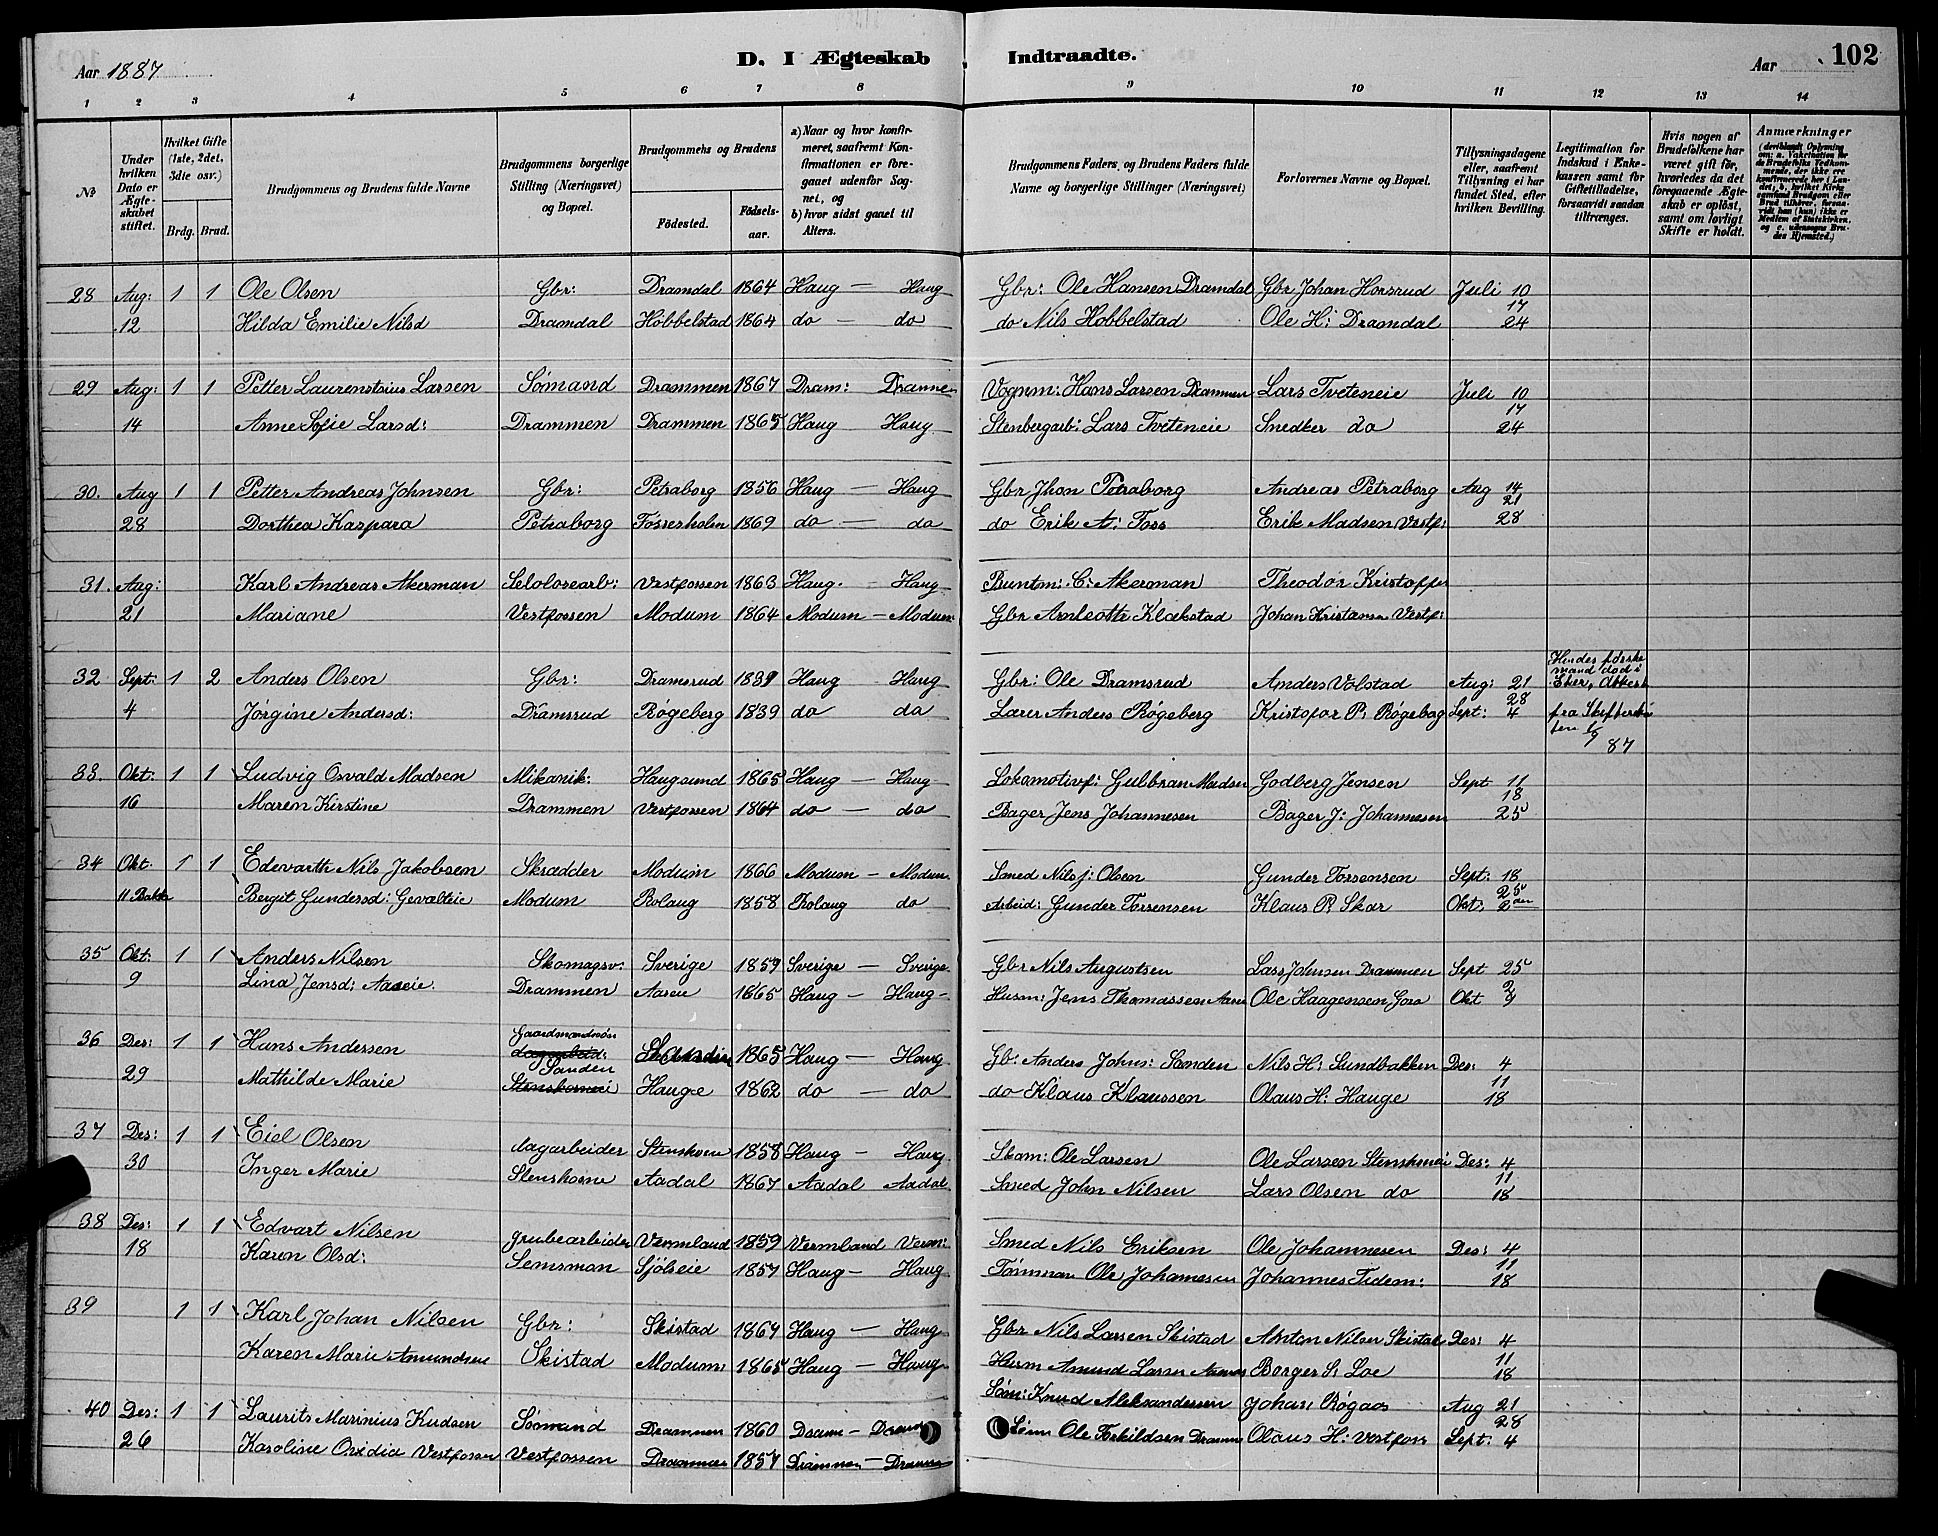 Aar 1887 D. I Ægteskab Indtraadte. Aar 102
1 2 3 4 5 6 7 8 9 10 11 12 13 14
№
Under hvilken Dato er Ægteskabet stiftet.
Hvilket Gifte (1ste, 2det, 3die osv.)
Brdg. Brud.
Brudgommens og Brudens fulde Navne
Brudgommens borgerlige Stilling (Næringsvei) og Bopæl.
Brudgommens og Brudens
Fødested. Fødselsaar.
a) Naar og hvor konfirmeret, saafremt Konfirmationen er foregaaet udenfor Sognet, og
b) hvor sidst gaaet til Alters.
Brudgommens Faders og Brudens Faders fulde Navne og borgerlige Stillinger (Næringsvei)
Forlovernes Navne og Bopæl.
Tillysningsdagene eller, saafremt Tillysning ei har fundet Sted, efter hvilken Bevilling.
Legitimation for Indskud i Enkekassen samt for Giftetilladelse, forsaavidt saadan tiltrænges.
Hvis nogen af Brudefolkene har været gift før, hvorledes da det foregaaende Ægteskab er opløst, samt om lovligt Skifte er holdt.
Anmærkninger (deriblandt Oplysning om: a. Vakcination for de Brudefolks Vedkommende, der ikke ere konfirmerede her i Landet, b. hvilket Kirkesamfund Brudgom eller Brud tilhører, forsaavidt han (hun) ikke er Medlem af Statskirken, og c. udensogns Brudes Hjemsted.)
28 Aug: 1 1 Ole Olsen Gbr: Dramdal 1864 Haug — Haug Gbr: Ole Hansen Dramdal Gbr Johan Horsrud Juli 10
17
12 Hilda Emilie Nilsd Dramdal Hobbelstad 1864 do — do do Nils Hobbelstad Ole H: Dramdal 24
29 Aug: 1 1 Petter Laurentsius Larsen Sømand Drammen 1867 Dram: Dramme Vognm: Hans Larsen Drammen Lars Tveteneie Juli 10
17
14 Anne Sofie Larsd: Drammen Drammen 1865 Haug Haug Stenbergarb: Lars Tveteneie Snedker do 24
30. Aug 1 1 Petter Andreas Johnsen Gbr: Petraborg 1856 Haug — Haug Gbr Jhon Petraborg Andreas Petraborg Aug 14
21
28 Dorthea Kaspara Petraborg Fosserholm 1869 do — do do Erik A: Foss Erik Madsen Vestf: 28
31. Aug: Karl Andreas Akerman Selolosearb: Vestfossen 1863 Haug. — Haug Buntm: C: Akerman Theodor Kristoffe
21 Mariane Vestfossen Modum 1864 Modum — Modum Gbr Klækstad Johan Kristiansen Vestf:
Hendes første mand død i Eker, Attest
32 Sept: 1 2 Anders Olsen Gbr: Dramsrud 1839 Haug Haug Gbr: Ole Dramsrud Anders Volstad Aug: 21
28
4 Jørgine Andersd: Dramsrud Røgeberg 1839 do do Lærer Anders Røgeberg Kristofar P: Røgeberg Sept: 4 fra Skifteretten 87
33. Okt: 1 1 Ludvig Osvald Madsen Mikanik: Haugsund 1865 Haug — Haug Lokomotivf: Gulbran Madsen Godberg Jensen Sept 11
18
16 Maren Kirstine Drammen Vestfossen 1864 do — do Bager Jens Johannesen Bager J: Johannesen 25
34 Okt. 1 1 Edevarth Nils Jakobsen Skrædder Modum 1866 Modum — Modum Smed Nils J: Olsen Gunder Torsensen Sept: 18
25
11 Bakke Bergit Gundersd: Gevalteie Modum Rolaug 1858 Rolaug do Arbeid: Gunder Torsensen Klaus P: Skar Okt: 2den
35 Okt: 1 1 Anders Nilsen Skomagsv: Sverige 1859 Sverige — Sverige Gbr Nils Augustsen Lars Johnsen Drammen Sept 25
2
9 Lina Jensd: Aaseie. Drammen Aaseie 1865 Haug — Haug Husm: Jens Thomassen Ole Haagensen Okt 9
36 Des: 1 1 Hans Andersen Gaardmandssøn dagarbeid: Sanden 1865 Haug — Haug Gb: Anders Johns: Sanden Nils H: Sundbakken Des: 4
11
29 Mathilde Marie Hauge 1862 do — do do Klaus Klaussen Olaus H: Hauge 18
37 Des: 1 1 Eiel Olsen dagarbeider 1858 Haug — Haug Skom: Ole Larsen Ole Larsen Des: 4
11
30 Inger Marie Aadal 1867 Aadal Aadal Smed John Nilsen Lars Olsen do 18
38 Des: 1 1 Edvart Nilsen grubearbeider Vermland 1859 Vermland Verm: Smed Nils Eriksen Ole Johannesen Des: 4
11
18 Karen Olsd: Semsmon Sjølseie 1857 Haug — Haug Tømman Ole Johannesen Johannes Tidem: 18
39 1 1 Karl Johan Nilsen Gbr: Skistad 1864 Haug — Haug Gbr Nils Larsen Skistad Anton Nilsen Skistad Des: 4
11
Karen Marie Amundsen Skistad Modum 1865 Haug — Haug Husm Amund Larsen Borger S: Loe 18
40 Des: 1 1 Laurits Marinius Kudsen Sømand Drammen 1860 Dram — Dram Søm: Knud Aleksandersen Johan Røgaas Aug 21
28
26 Karoline Ovidia Vestfossen Vestfossen Drammen 1857 Drammen — Drammen Ole Torkildsen Dramm Olaus H: Vestfoss Sept: 4